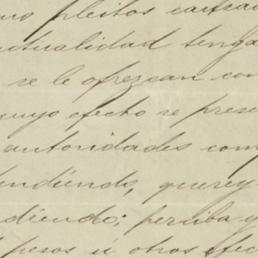 pleitos causas
actualidad tenga
se le ofrezcan con
cuyo efecto se prese
autoridades com
endiendo, querey
diendo; perciba y
pesos ú otros efec